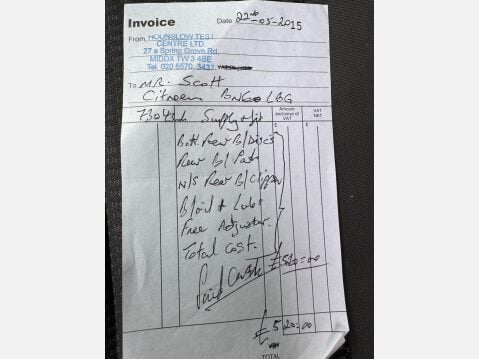 Invoice
Date 22nd-05-2015
From HOUNSLOW TEST
CENTRE LTD
27 a Spring Grove Rd,
MIDDX TW3 4BE
Tel. 020 8570 3437
To MR. Scott
Citroen BN60 LBG
Amount exclusive of VAT
VAT NET
£
£
Supply & fit
Both Rear B/Discs
Rear B/Pads
N/S Rear B/Clipper
B/oil & Lube
Free Adjuster.
Total Cost.
Paid Cash £520=00
£520=00
TOTAL